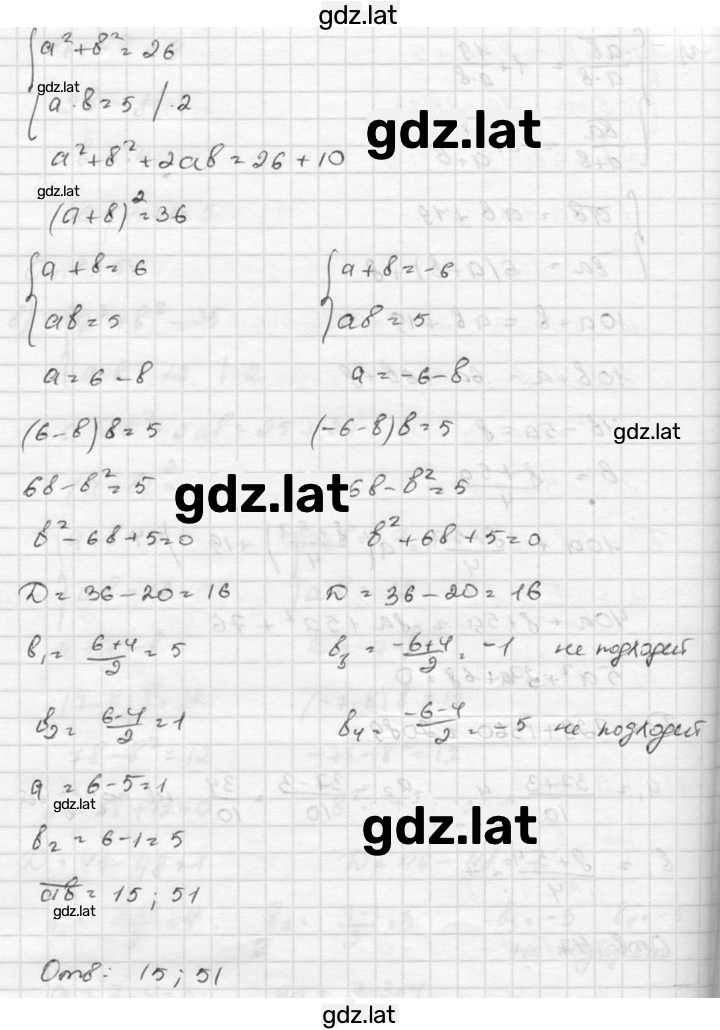 gdz.lat
a² + в² = 26
gdz.lat
a · в = 5 / · 2
gdz.lat
a² + в² + 2aв = 26 + 10
gdz.lat
(a + в)² = 36
a + в = 6 a + в = -6
aв = 5 aв = 5
a = 6 - в a = -6 - в
(6 - в) в = 5 (-6 - в) в = 5
gdz.lat
6в - в² = 5 6в - в² = 5
gdz.lat
в² - 6в + 5 = 0 в² + 6в + 5 = 0
D = 36 - 20 = 16 D = 36 - 20 = 16
в₁ = (6+4)/2 = 5 в₃ = (-6+4)/2 = -1 не подходит
в₂ = (6-4)/2 = 1 в₄ = (-6-4)/2 = -5 не подходит
a = 6 - 5 = 1
gdz.lat
gdz.lat
в₂ = 6 - 1 = 5
aв = 15 ; 51
gdz.lat
Отв: 15 ; 51
gdz.lat